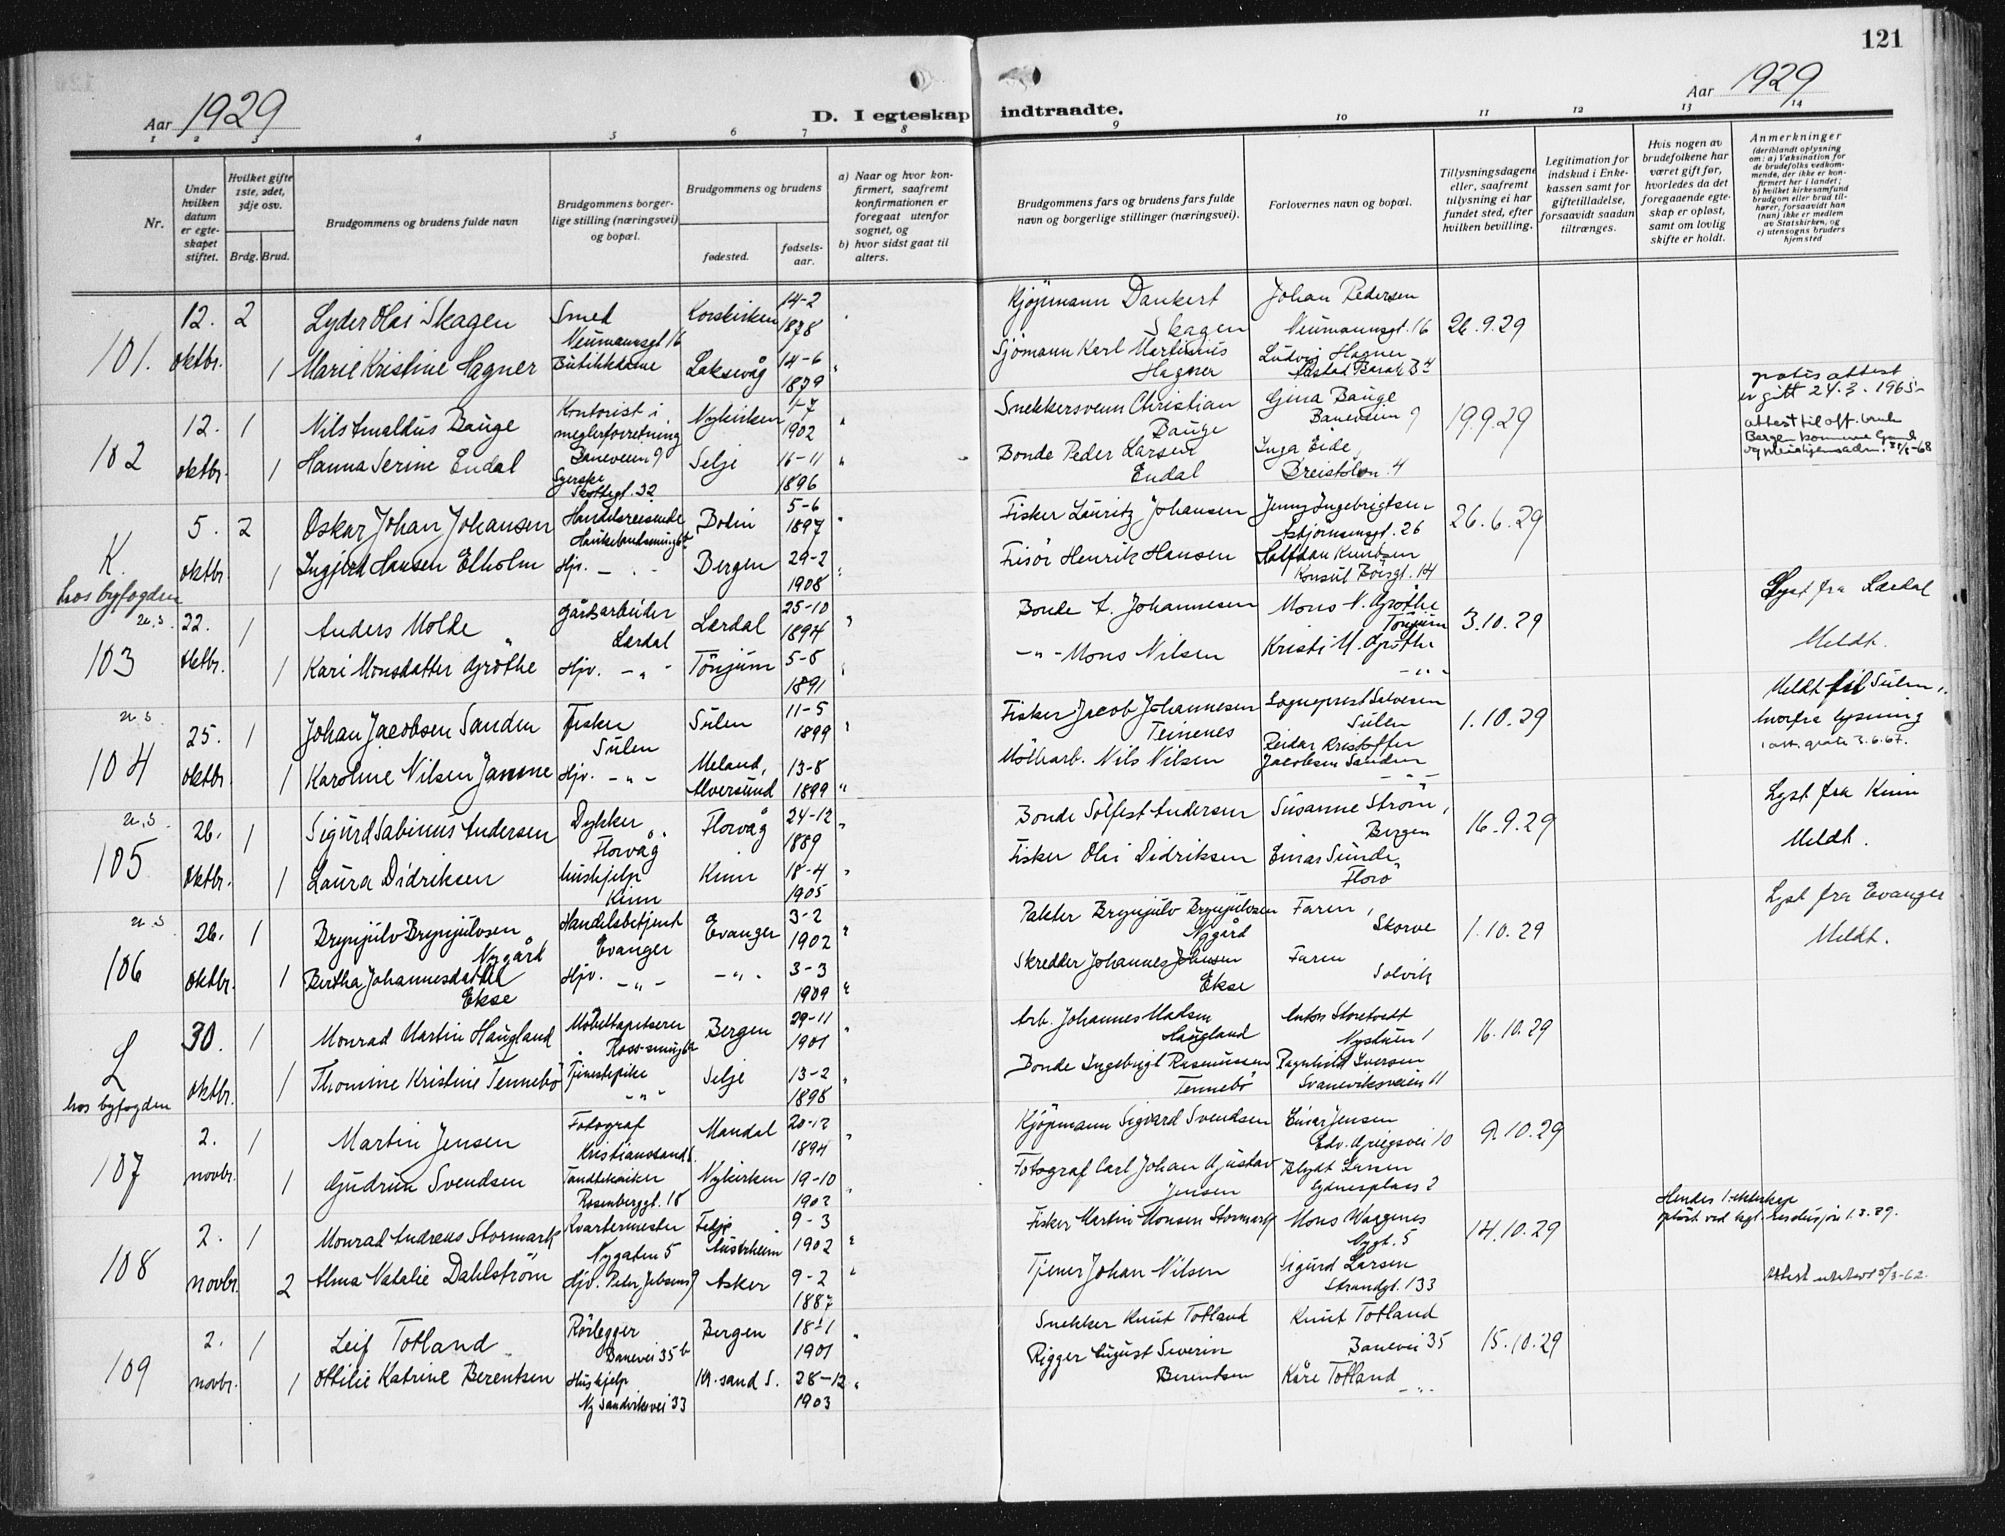 121
Aar 1929
D. I egteskap indtraadte.
Aar 1929
1 2 3 4 5 6 7 8 9 10 11 12 13 14
Nr.
Under hvilken datum er egteskapet stiftet.
Hvilket gifte 1ste, 2det, 3dje osv.
Brdg. Brud.
Brudgommens og brudens fulde navn
Brudgommens borgerlige stilling (næringsvei) og bopæl.
Brudgommens og brudens
fødested.
fødselsaar.
a) Naar og hvor konfirmert, saafremt konfirmationen er foregaat utenfor sognet, og
b) hvor sidst gaat til alters.
Brudgommens fars og brudens fars fulde navn og borgerlige stillinger (næringsvei).
Forlovernes navn og bopæl.
Tillysningsdagene eller, saafremt tillysning ei har fundet sted, efter hvilken bevilling.
Legitimation for indskud i Enkekassen samt for giftetilladelse, forsaavidt saadan tiltrænges.
Hvis nogen av brudefolkene har været gift før, hvorledes da det foregaaende egteskap er opløst, samt om lovlig skifte er holdt.
Anmerkninger
(deriblandt oplysning om: a) Vaksination for de brudefolks vedkommende, der ikke er konfirmert her i landet; b) hvilket kirkesamfund brudgom eller brud tilhører, forsaavidt han (hun) ikke er medlem av Statskirken, og c) utensogns bruders hjemsted
101. 12. oktbr. 2 Lyder Olai Skagen Smed Neumannsgt 16 Korskirken 14-2 1878 Kjøpmann Dankert Skagen Johan Pedersen Neumannsgt. 16 26.9.29
1 Marie Kristine Hagner Laksevåg 14-6 1879 Sjømann Karl Martinius Hagner Ludvig Hagner
102 12. oktbr. 1 Nils Arnoldus Bauge Kontorist i meglerforretning Baneveien 9 Nykirken 1-7 1902 Snekkersvenn Christian Bauge Gina Bauge Baneveien 9 19.9.29
gratis attest er gitt 24.3.1965
1 Hanna Serine Endal Syerske Skottegt. 32 Selje 16-11 1896 Bonde Peder Larsen Endal Inga Eide Breistølen 4
K. hos byfogden 5. oktbr. 2 Oskar Johan Johansen Handelsreisende 5-6 1897 Fisker Lauritz Johansen Jenny Ingebrigtsen Asbjørnsensgt. 26 26.6.29
1 Ingjerd Hansen Elholm Hjv. - " - Bergen 29-2 1908 Frisør Henrik Hansen Halfdan Knudsen Konsul Børsgt. 14
u.s 103 22. oktbr. 1 Anders Molde Gårdsarbeider Lærdal Lærdal 25-10 1894 Bonde A. Johannesen Mons N. Grøthe Tønjum 3.10.29 Lyst fra Lærdal
1 Kari Monsdatter Grøthe Hjv. - " - Tønjum 5-8 1891 - " - Mons Nilsen Kristi M. Grøthe - " - Meldt.
u.s 104 25. oktbr. 1 Johan Jacobsen Sanden Fisker Sulen Sulen 11-5 1899 Fisker Jacob Johannesen Teinenes Sogneprest Salvesen Sulen 1.10.29 Meldt til Sulen, hvorfra lysning
1 att. gratis 3.6.67.
1 Karoline Nilsen Janne Hjv. - " - Meland, Alversund 13-8 1899 Mølbarb. Nils Nilsen Reidar Kristoffer Jacobsen Sanden - " -
u.s 105 26. oktbr. 1 Sigurd Sabinus Andersen Dykker Florvåg Florvåg 24-12 1889 Bonde Solfest Andersen Susanne Strøm, Bergen 16.9.29 Lyst fra Kinn
1 Laura Didriksen hushjelp Kinn Kinn 18-4 1905 Fisker Olai Didriksen Einar Sunde, Florø Meldt.
u.s 106 26. oktbr. 1 Brynjulv Brynjulvsen Nygård Handelsbetjent Evanger Evanger 3-2 1902 Brynjulv Brynjulvsen Nygård Faren, Skorve 1.10.29 Lyst fra Evanger
1 Bertha Johannesdatter Ekse Hjv. - " - - " - 3-3 1909 Skredder Johannes Johnsen Ekse Faren Solvik Meldt.
L hos byfogden 30. oktbr. 1 Monrad Martin Haugland Møbeltapetserer Bergen 29-11 1901 Arb. Johannes Madsen Haugland Anton Storetvedt Nystuen 1 16.10.29
1 Thomine Kristine Tennebø Tjenestepike - " - Selje 13-2 1898 Bonde Ingebrigt Rasmussen Tennebø Ragnhild Iversen Svaneviksveien 11
107 2. novbr. 1 Martin Jensen Fotograf Kristianssand S. Mandal 20-12 1894 Kjøpmann Sigvard Svendsen Einar Jensen Edv. Griegsvei 10 9.10.29
1 Gudrun Svendsen Tandtekniker Rosenberggt. 18 Nykirken 19-10 1902 Fotograf Carl Johan Gustav Jensen Blydt Larsen Sydnesplass 2
108 2. novbr. 1 Monrad Andreas Stormark Kvartermester Nygaten 5 Fedje Austrheim 9-3 1902 Fisker Martin Monsen Stormark Mons Waagenes Nygt. 5 14.10.29 Hendes 1. ekteskap opløst ved kgl. resolusjon 1.2.29.
2 Alma Natalie Dahlstrøm Hjv. Peter Jebsens 9 Asker 9-2 1887 Tjener Johan Nilsen Sigurd Larsen Strandgt. 133 Attest utstedt 5/3-62.
109 2. novbr. 1 Leif Totland Rørlegger Banevei 35 b Bergen 18-1 1901 Snekker Knut Totland Knut Totland Banevei 35 15.10.29
1 Ottilie Katrine Berentsen Hushjelp Ny Sandviksvei 33 Kr.sand S. 28-12 1903 Rigger August Severin Berentsen Kåre Totland - " -